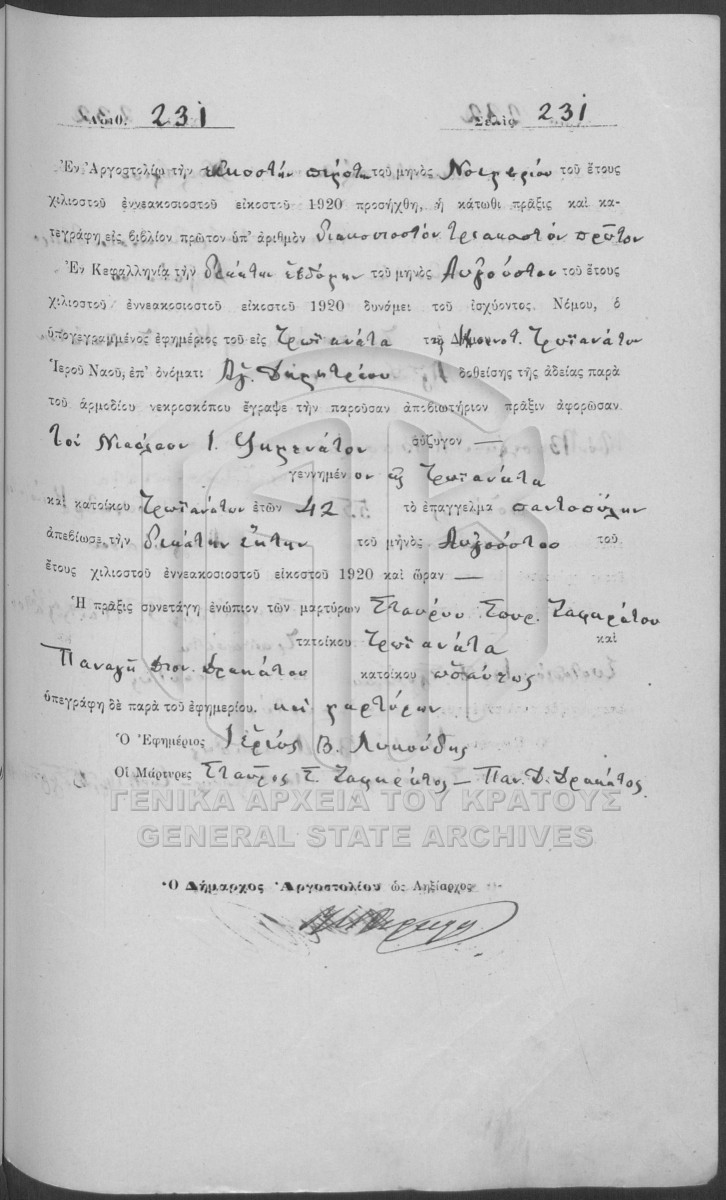 231 231
Ἐν Ἀργοστολίῳ τὴν εἰκοστὴν πρώτην τοῦ μηνὸς Νοεμβρίου τοῦ ἔτους
χιλιοστοῦ ἐννεακοσιοστοῦ εἰκοστοῦ 1920 προσήχθη, ἡ κάτωθι πρᾶξις καὶ κα-
τεγράφη εἰς βιβλίον πρῶτον ὑπ' ἀριθμὸν διακοσιοστόν τριακοστόν πρῶτον
Ἐν Κεφαλληνίᾳ τὴν δεκάτην ἑβδόμην τοῦ μηνὸς Αὐγούστου τοῦ ἔτους
χιλιοστοῦ ἐννεακοσιοστοῦ εἰκοστοῦ 1920 δυνάμει τοῦ ἰσχύοντος. Νόμου, ὁ
ὑπογεγραμμένος ἐφημέριος τοῦ εἰς Τρωϊανάτα τῆς Κοινοτ. Τρωϊανάτων
Ἱεροῦ Ναοῦ, ἐπ' ὀνόματι Ἁγ. Δημητρίου δοθείσης τῆς ἀδείας παρὰ
τοῦ ἁρμοδίου νεκροσκόπου ἔγραψε τὴν παροῦσαν ἀποβιωτήριον πρᾶξιν ἀφορῶσαν
τόν Νικόλαον Ι. σύζυγον —
γεννημένον εἰς Τρωϊανάτα
καὶ κατοίκου Τρωϊανάτων ἐτῶν 42 τὸ ἐπάγγελμα παντοπώλην
ἀπεβίωσε τὴν δεκάτην ἕκτην τοῦ μηνὸς Αὐγούστου τοῦ
ἔτους χιλιοστοῦ ἐννεακοσιοστοῦ εἰκοστοῦ 1920 καὶ ὥραν —
Ἡ πρᾶξις συνετάγη ἐνώπιον τῶν μαρτύρων Σταύρου Σπυρ. Ζαφειράτου
τατοίκου Τρωϊανάτα καὶ
Παναγῆ Διον. Δρακάτου κατοίκου ὡσαύτως
ὑπεγράφη δὲ παρὰ τοῦ ἐφημερίου. καί μαρτύρων
Ὁ Ἐφημέριος Ἱερεύς Β. Λυκούδης
Οἱ Μάρτυρες Σταῦρος Σ. Ζαφειράτος — Παν. Δ. Δρακάτος
ΓΕΝΙΚΑ ΑΡΧΕΙΑ ΤΟΥ ΚΡΑΤΟΥΣ
GENERAL STATE ARCHIVES
Ὁ Δήμαρχος Ἀργοστολίου ὡς Ληξίαρχος